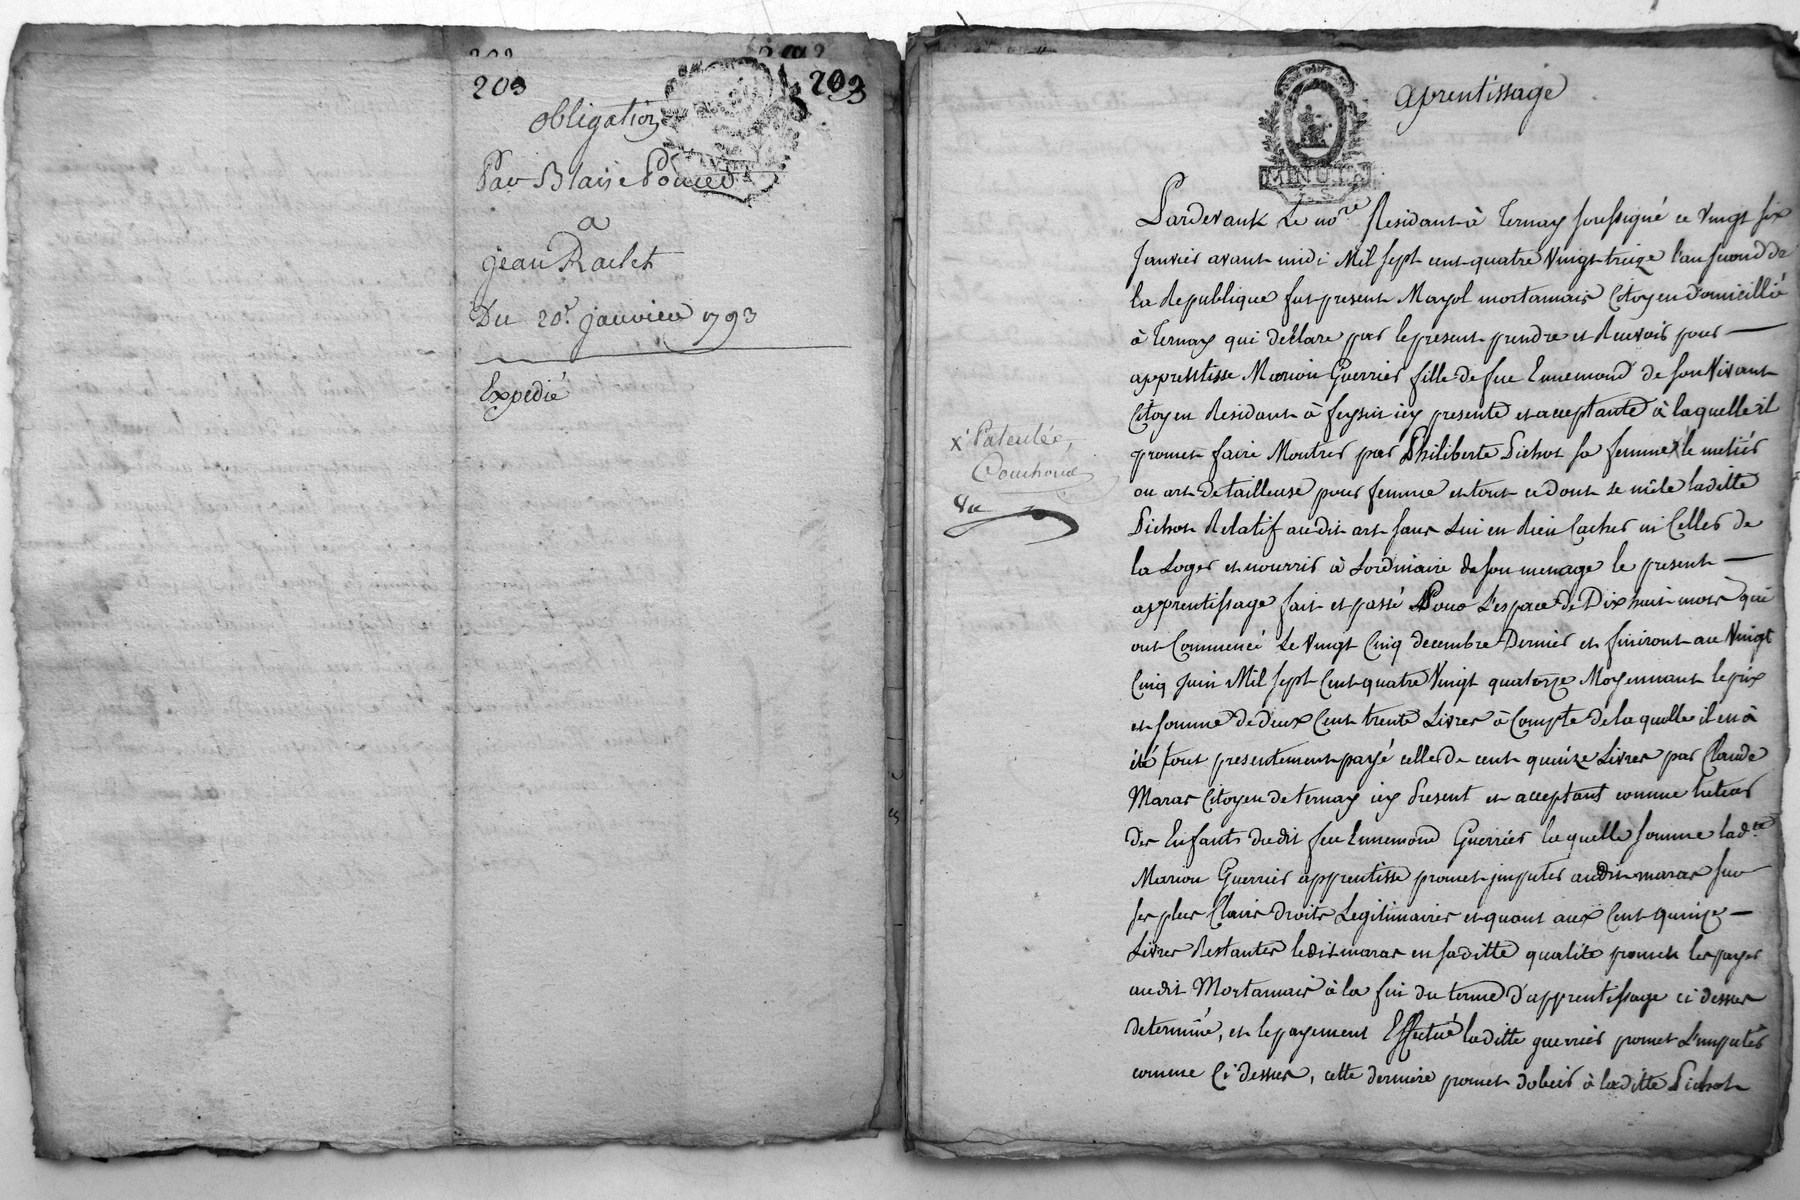 203
203
obligation
Par Blaise Poncet
a
jean Raclet
Du 20e. janvier 1793
Expedié
MINUTE
aprentissage
Pardevant Le nore. Residant à Ternay soussigné ce vingt six
Janvier avant midi Mil sept cent quatre vingt treize l'an second de
la Republique fut present Mayol mortamais Citoyen domicillié
à Ternay qui déclare par le present prendre et Recevoir pour
apprentisse Marion Guerrier fille de feu Ennemond de son Vivant
Citoyen Residant à feysin icy presente et acceptante à laquelle il
promet faire Montrer par Philiberte Pichot sa femme x le metier
ou art de tailleuse pour femme et tout ce dont se mêle laditte
Pichot Relatif audit art sans Lui en Rien Cacher ni Celler de
la Loger et nourrir à Lordinaire de son menage le present
apprentissage fait et passé Pour L'espace de Dix huit mois qui
ont Commencé Le vingt Cinq decembre Dernier et finiront au Vingt
Cinq juin Mil sept Cent quatre Vingt quatorze Moyennant le prix
et somme de deux Cent trente Livres à Compte de laquelle il en à
été tout presentement payé celle de cent quinze Livres par Claude
Maras Citoyen de ternay icy present et acceptant comme tuteur
des Enfants dudit feu Ennemond Guerrier laquelle somme ladte
Marion Guerrier apprentisse promet imputer audit maras sur
ses plus Clairs droits Legitimaires et quant aux Cent quinze
Livres Restantes ledit maras en saditte qualité promet les payer
audit Mortamais à la fin du terme d'apprentissage ci dessus
determiné, et le payement Effectué laditte guerrier promet L'imputer
comme Ci dessus, cette derniere promet dobeir à laditte Pichot
x Patentée,